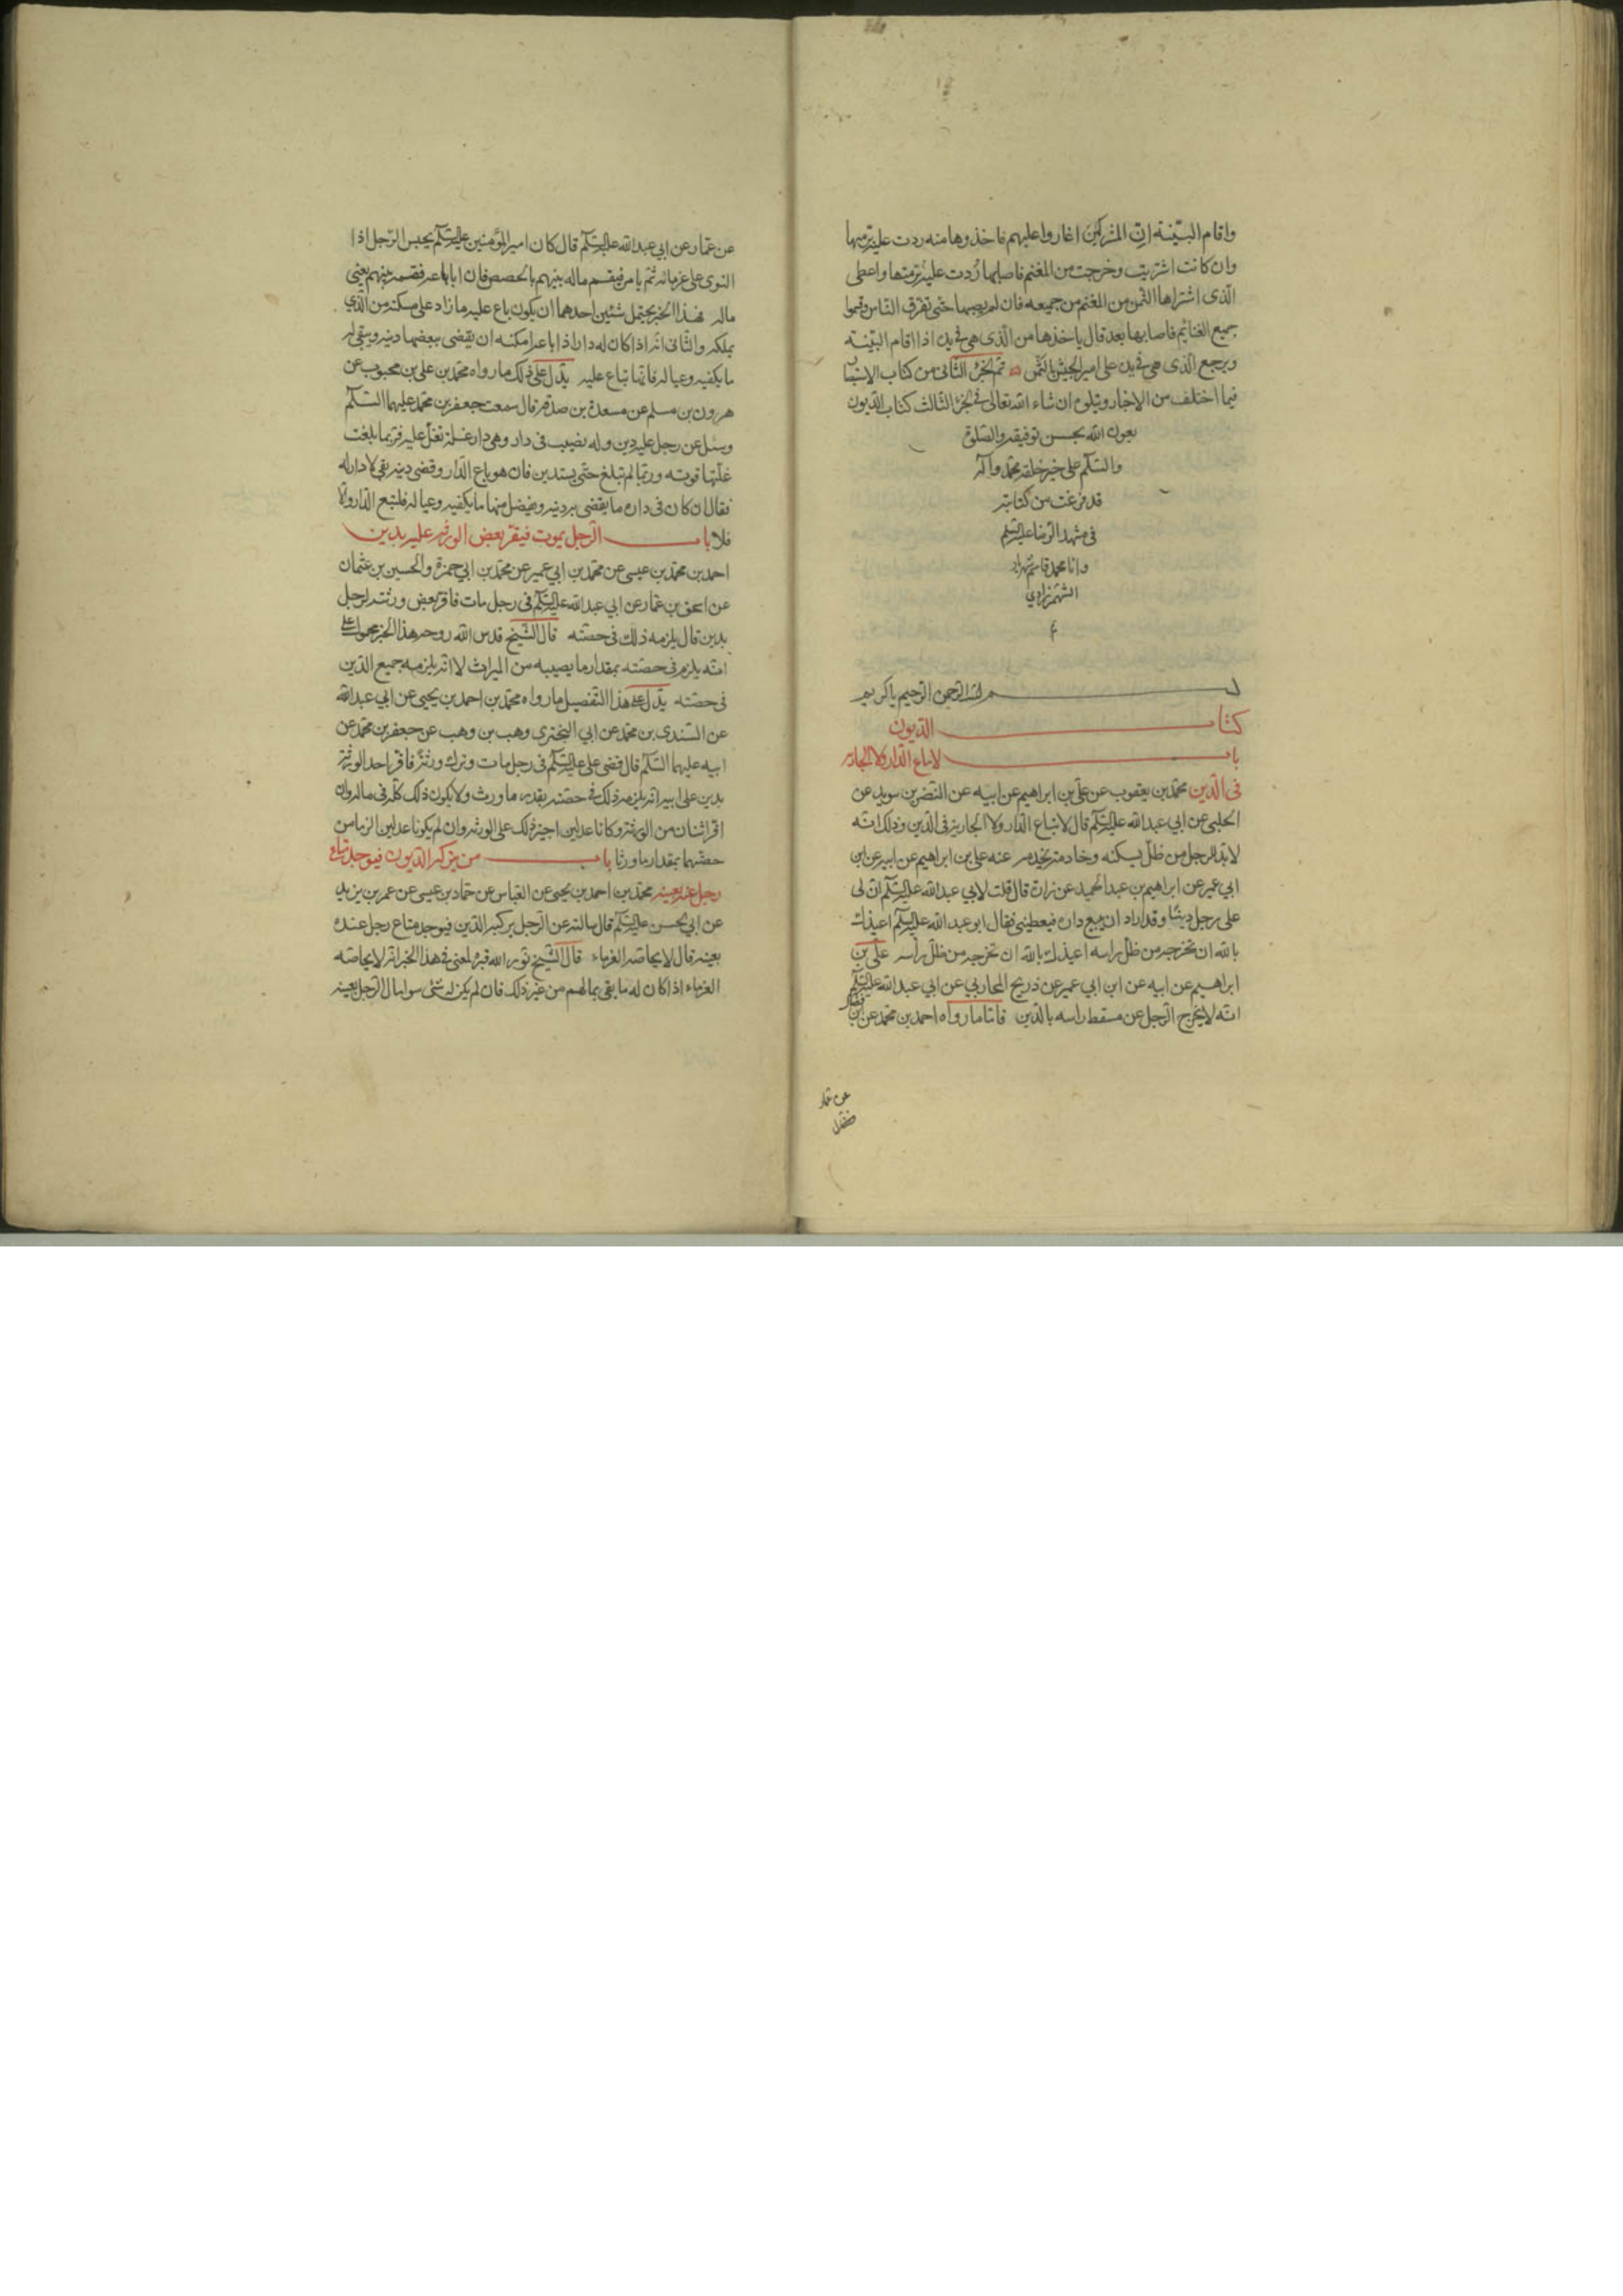 واقام البيّنة انّ المشركين اغاروا عليهم فاخذوها منه ردت عليه برمتها
وان كانت اشتريت وخرجت من المغنم فاصابها رُدت عليه برمتها واعطى
الّذى اشتراها الثمن من المغنم من جميعه فان لم يصبها حتّى تفرق النّاس وقسموا
جميع الغنائم فاصابها بعد قال ياخذها من الّذى هى فى يده اذا اقام البيّنة
ويرجع الّذى هى فى يده على امير الجيش بالثّمن تم الجزء الثّانى من كتاب الاستبصار
فيما اختلف من الاخبار ويتلوه ان شاء الله تعالى فى الجزء الثّالث كتاب الدّيون
بعون الله بحسن توفيقه والصّلوة
والسّلم على خير خلقه محمّد وآله
قد فرغت من كتابته
فى مشهد الرّضا عليه السّلم
وانا محمد قاسم
بسم الله الرّحمن الرّحيم يا كريم
كتاب الدّيون
باب لا تباع الدّار ولا الجارية
فى الدّين محمّد بن يعقوب عن علىّ بن ابراهيم عن ابيه عن النّضر بن سويد عن
الحلبى عن ابي عبد الله عليه السّلم قال لا تباع الدّار ولا الجارية فى الدّين وذلك انّه
لا بدّ للرجل من ظلّ يسكنه وخادم يخدمه عنه على بن ابراهيم عن ابيه عن ابن
ابي عمير عن ابراهيم بن عبد الحميد عن زرارة قال قلت لابي عبد الله عليه السّلم انّ لى
على رجل دينًا وقد اراد ان يبيع داره فيعطينى فقال ابو عبد الله عليه السّلم اعيذك
بالله ان تخرجه من ظلّ راسه اعيذك بالله ان تخرجه من ظلّ رأسه علىّ بن
ابراهيم عن ابيه عن ابن ابي عمير عن ذريح المحاربي عن ابي عبد الله عليه السّلم
انّه لا يخرج الرّجل عن مسقط راسه بالدّين فامّا ما رواه احمد بن محمّد عن ابن فضال
عن عمار
عن عمّار عن ابي عبد الله عليه السّلم قال كان امير المؤمنين عليه السّلم يحبس الرّجل اذا
التوى على غرمائه ثمّ يامر فيقسم ماله بينهم بالحصص فان ابا باعه فقسمه بينهم يعنى
ماله فهذا الخبر يحتمل شئين احدهما ان يكون باع عليه ما زاد على مسكنه من الّذي
يملكه والثّانى انّه اذا كان له دار اذا باعها امكنه ان يقضى ببعضها دينه ويبقى له
ما يكفيه وعياله فانّها تباع عليه يدّل على ذلك ما رواه محمّد بن على بن محبوب عن
هرون بن مسلم عن مسعدة بن صدقه قال سمعت جعفر بن محمّد عليهما السّلم
وسئل عن رجل عليه دين وله نصيب فى دار وهى دار غلة تغلّ عليه فربّما بلغت
غلّتها قوته وربّما لم تبلغ حتّى يستدين فان هو باع الدّار وقضى دينه بقى لا دار له
فقال ان كان فى داره ما يقضى به دينه ويفضل منها ما يكفيه وعياله فليبع الدّار والّا
فلا باب الرّجل يموت فيقرّ بعض الورثه عليه بدين
احمد بن محمّد بن عيسى عن محمّد بن ابي عمير عن محمّد بن ابي حمزة والحسين بن عثمان
عن اسحق بن عمّار عن ابي عبد الله عليه السّلم فى رجل مات فاقرّ بعض ورثته لرجل
بدين قال يلزمه ذلك فى حصّته قال الشّيخ قدس الله روحه هذا الخبر محمول على
انّه يلزم فى حصّته بمقدار ما يصيبه من الميراث لا انّه يلزمه جميع الدّين
فى حصّته يدّل على هذا التفصيل ما رواه محمّد بن احمد بن يحيى عن ابي عبد الله
عن السّندى بن محمّد عن ابي البخترى وهب بن وهب عن جعفر بن محمّد عن
ابيه عليهما السّلم قال قضى على عليه السّلم فى رجل مات وترك ورثة فاقرّ احد الورثة
بدين على ابيه انّه يلزمه ذلك فى حصّته بقدر ما ورث ولا يكون ذلك كلّه فى ماله وان
اقرّ اثنان من الورثة وكانا عدلين اجيز ذلك على الورثه وان لم يكونا عدلين الزما من
حصّتهما بمقدار ما ورثا باب من يركبه الدّيون فيوجد متاع
رجل عنده بعينه محمّد بن احمد بن يحيى عن العبّاس عن حمّاد بن عيسى عن عمر بن يزيد
عن ابي الحسن عليه السّلم قال سالته عن الرّجل يركبه الدّين فيوجد متاع رجل عنده
بعينه قال لا يحاصّه الغرماء قال الشّيخ نوّر الله قبره المعنى فى هذا الخبر انّه لا يحاصّه
الغرماء اذا كان له ما بقى بمالهم من غير ذلك فان لم يكن له شئ سوا مال الرّجل بعينه